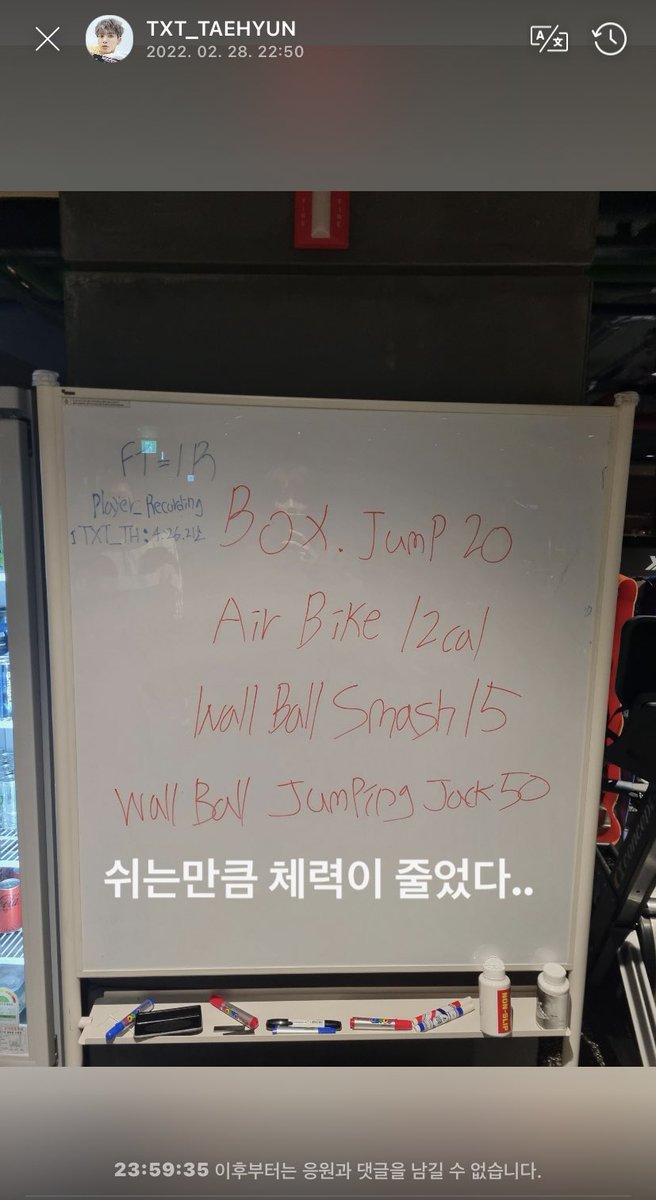 TXT_TAEHYUN
2022. 02. 28. 22:50
FIRE
FIRE
FT = 1R
Player_Recording
1 TXT_TH : 4.26.21초
BOX. JUMP 20
Air Bike 12cal
Wall Ball Smash 15
Wall Ball Jumping Jack 50
쉬는만큼 체력이 줄었다..
NON-SLIP
23:59:35 이후부터는 응원과 댓글을 남길 수 없습니다.